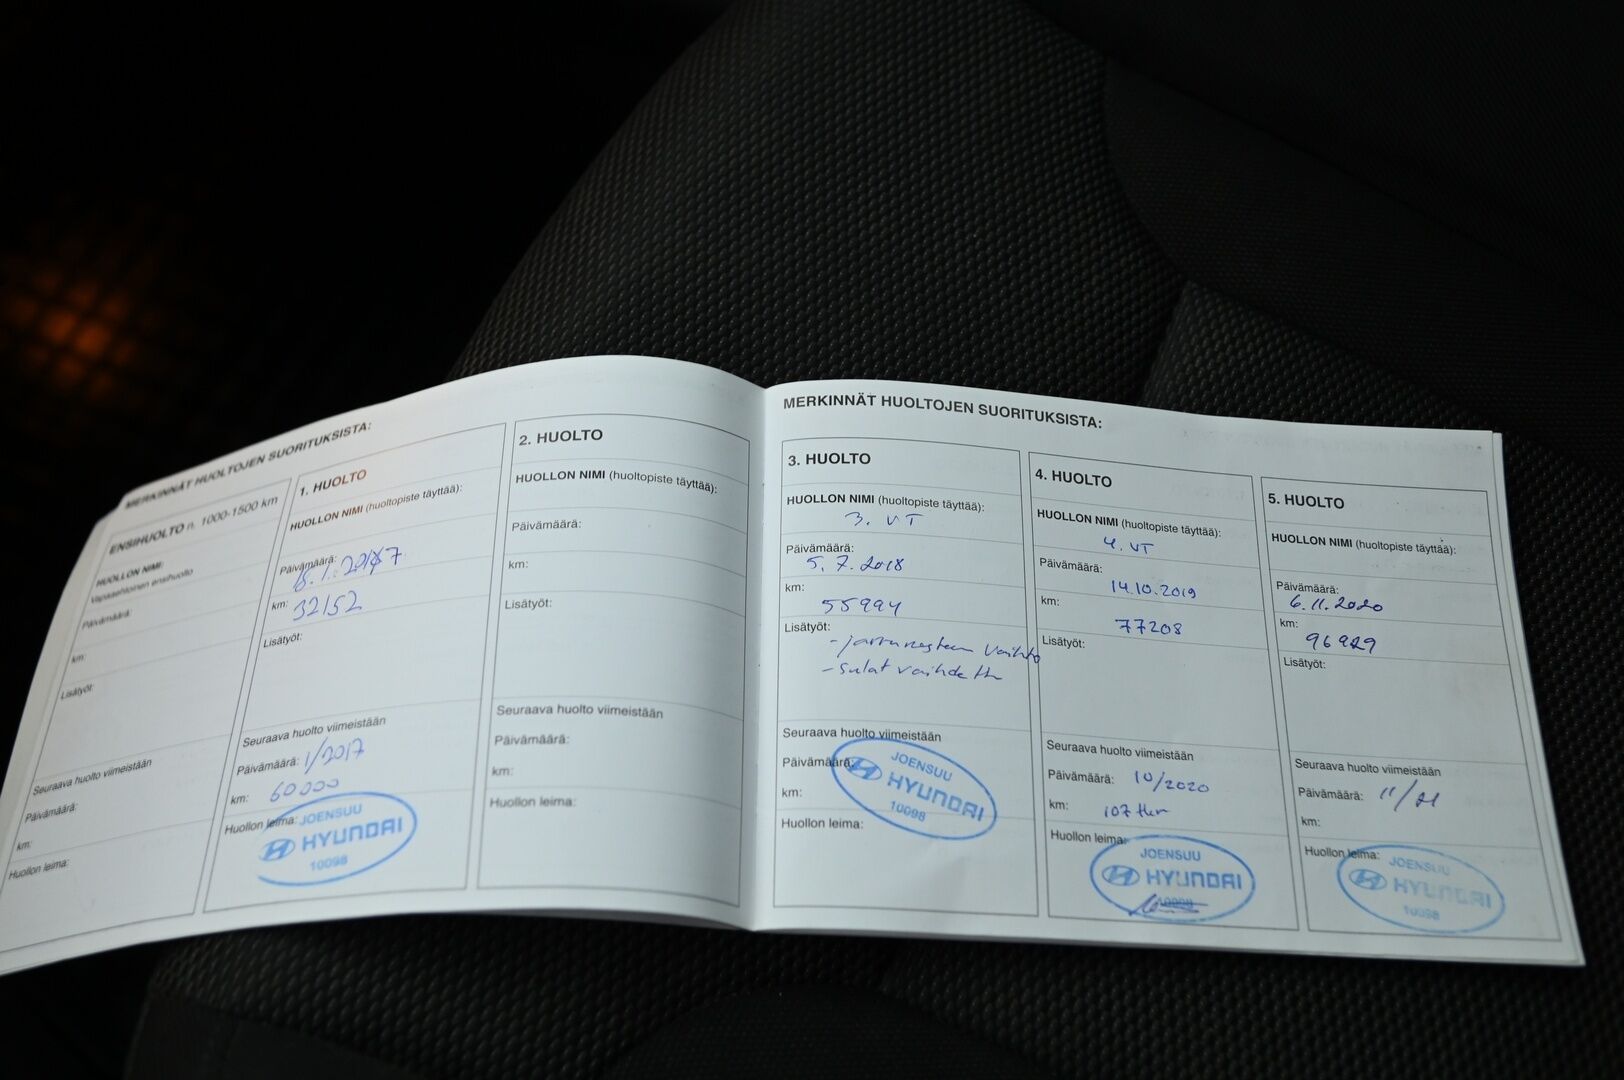 MERKINNÄT HUOLTOJEN SUORITUKSISTA:
ENSIHUOLTO n. 1000-1500 km
HUOLLON NIMI:
Vapaaehtoinen ensihuolto
Päivämäärä:
km:
Lisätyöt:
Seuraava huolto viimeistään
Päivämäärä:
km:
Huollon leima:
1. HUOLTO
HUOLLON NIMI (huoltopiste täyttää):
Päivämäärä:
km: 32152
Lisätyöt:
Seuraava huolto viimeistään
Päivämäärä: 1/2017
km: 60000
Huollon leima:
JOENSUU
HYUNDAI
10098
2. HUOLTO
HUOLLON NIMI (huoltopiste täyttää):
Päivämäärä:
km:
Lisätyöt:
Seuraava huolto viimeistään
Päivämäärä:
km:
Huollon leima:
MERKINNÄT HUOLTOJEN SUORITUKSISTA:
3. HUOLTO
HUOLLON NIMI (huoltopiste täyttää):
3. VT
Päivämäärä:
5.7.2018
km:
55994
Lisätyöt:
- jarrunesteen vaihto
- sulat vaihdettu
Seuraava huolto viimeistään
Päivämäärä:
km:
Huollon leima:
JOENSUU
HYUNDAI
10098
4. HUOLTO
HUOLLON NIMI (huoltopiste täyttää):
4. VT
Päivämäärä:
14.10.2019
km:
77208
Lisätyöt:
Seuraava huolto viimeistään
Päivämäärä: 10/2020
km: 107 tkm
Huollon leima:
JOENSUU
HYUNDAI
10098
5. HUOLTO
HUOLLON NIMI (huoltopiste täyttää):
Päivämäärä:
6.11.2020
km:
96929
Lisätyöt:
Seuraava huolto viimeistään
Päivämäärä: 11/21
km:
Huollon leima:
JOENSUU
HYUNDAI
10098